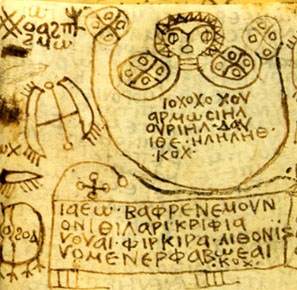 ΙΟΧΟΧΟΧΟΥ
ΑΡΜΩΣΙΗΛ
ΟΥΡΙΗΛ·ΔΑΥ
ΙΘΕ·ΗΛΗΛΗΘ·
ΚΟΧ·
ΙΑΕΩ·ΒΑΦΡΕΝΕΜΟΥΝ
ΟΝΙΘΙΛΑΡΙΚΡΙΦΙΑ
ΥΟΥΑΙ·ΦΙΡΚΙΡΑ·ΛΙΘΟΝΙΣ
ΥΟΜΕΝΕΡΦΑΒΩΕΑΙ
·ΚΟΧ·